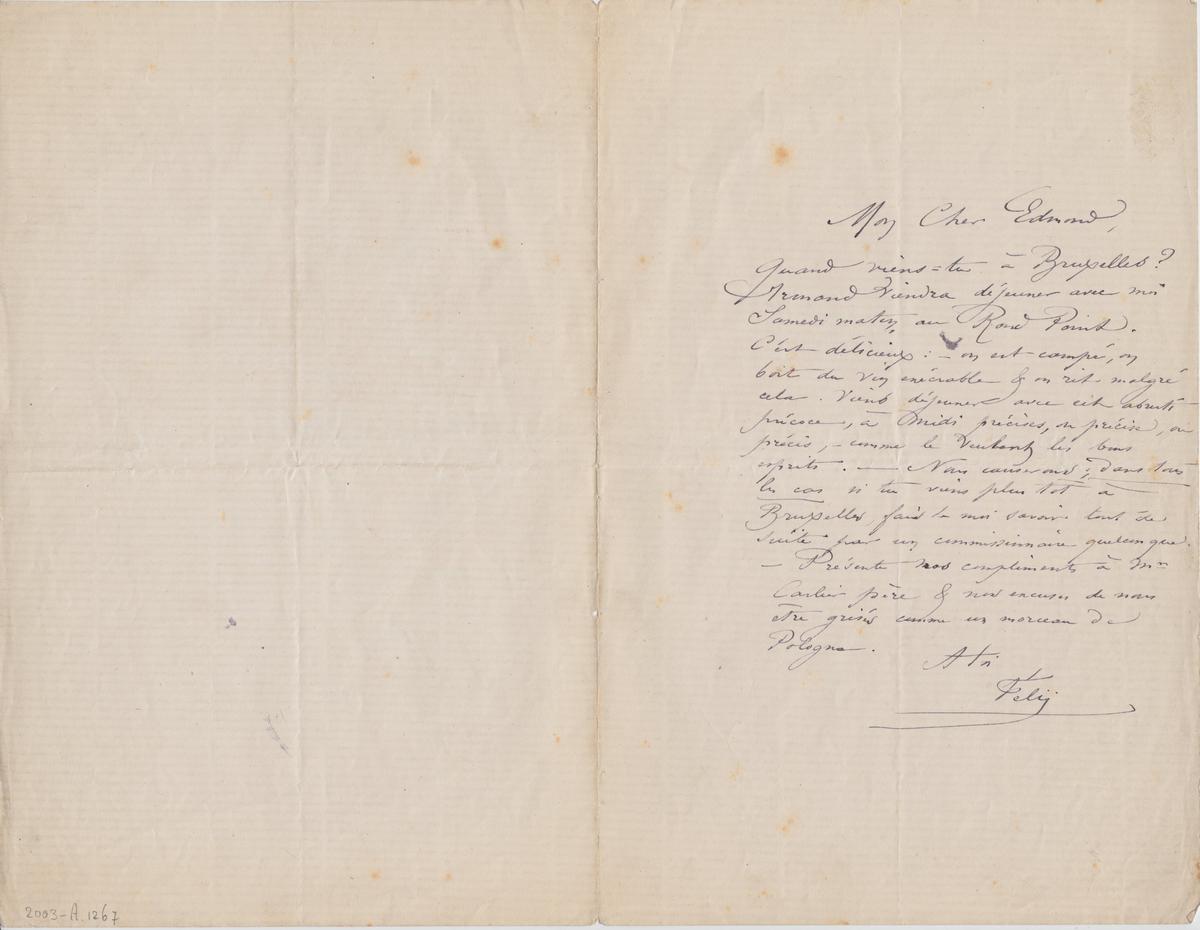 Mon Cher Edmond,
Quand viens=tu à Bruxelles?
Armand Viendra déjeuner avec moi
Samedi matin, au Rond Point.
C'est délicieux: – on est campé, on
boit du vin exécrable & on rit malgré
cela. Viens déjeuner avec cet abruti
précoce, à Midi précises, ou précise, ou
précis, – comme le Veulent les bons
esprits. — Nous causerons; dans tous
les cas si tu viens plus tôt à
Bruxelles, fais le moi savoir tout de
suite par un commissionnaire quelconque.
– Présente nos compliments à Mr
Carlier père & nos excuses de nous
être grisés comme un morceau de
Pologne.
A toi
Fély
2003-A.1267